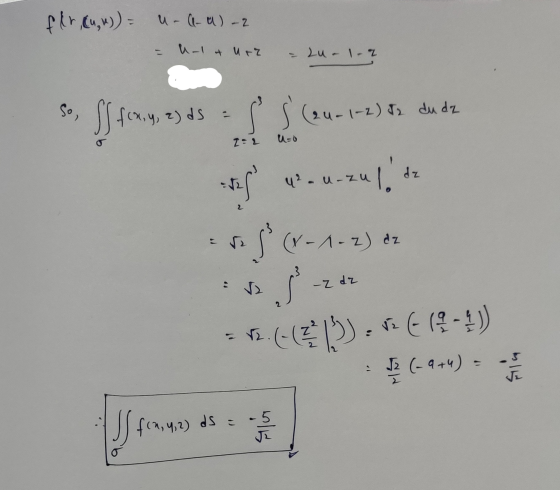 f(r(u,v)) = u - (1-u) - z
= u - 1 + u + z = 2u - 1 - z
So, ∬σ f(x,y,z) ds = ∫_{z=2}^{3} ∫_{u=0}^{1} (2u-1-z) √2 du dz
= √2 ∫_2^3 u² - u - zu |_0^1 dz
= √2 ∫_2^3 (1-1-z) dz
= √2 ∫_2^3 -z dz
= √2 · (-(z²/2 |_2^3)) = √2 (-(9/2 - 4/2))
= √2/2 (-9+4) = -5/√2
∴ ∬σ f(x,y,z) ds = -5/√2